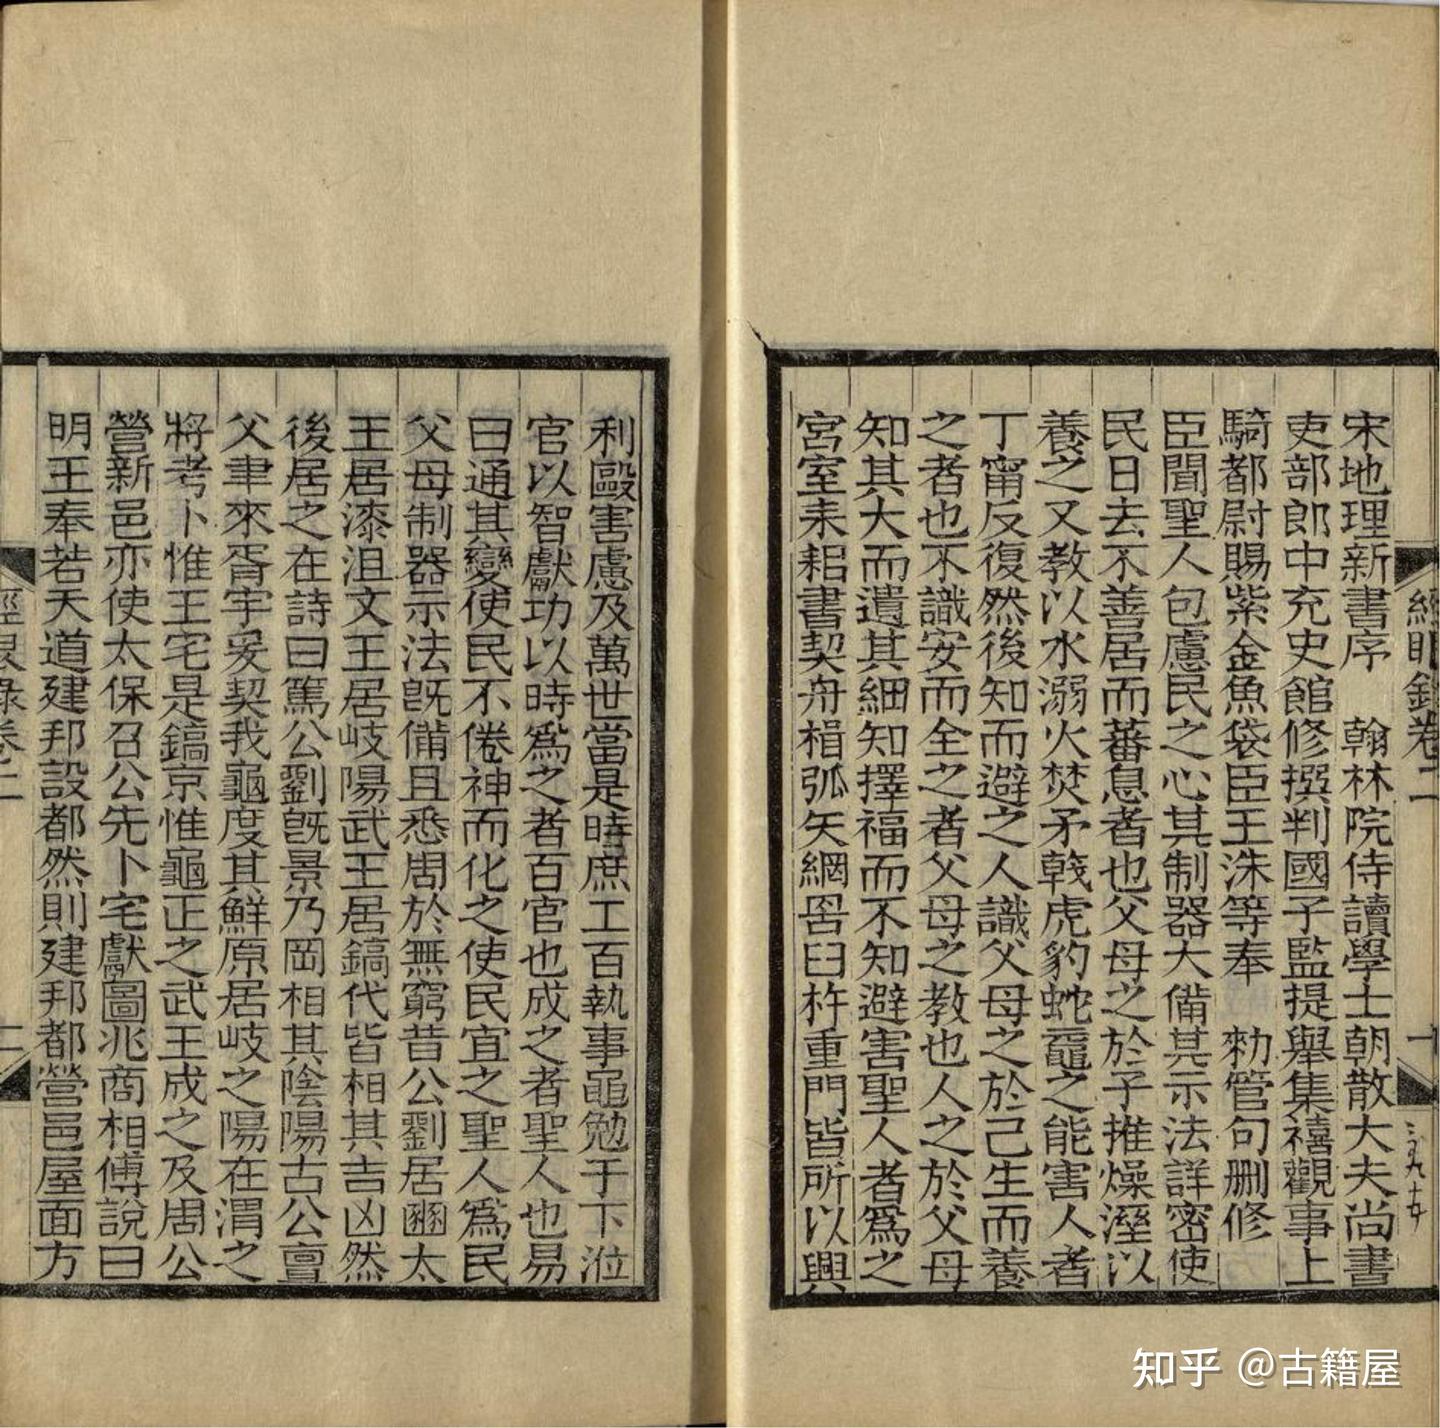 經眼錄卷二
一
宋地理新書序　翰林院侍讀學士朝散大夫尚書
吏部郎中充史館修撰判國子監提舉集禧觀事上
騎都尉賜紫金魚袋臣王洙等奉　勑管句刪修
臣聞聖人包慮民之心其制器大備其示法詳密使
民日去不善居而蕃息者也父母之於子推燥溼以
養之又教以水溺火焚矛戟虎豹蛇黿之能害人者
丁甯反復然後知而避之人識父母之於己生而養
之者也不識安而全之者父母之教也人之於父母
知其大而遺其細知擇福而不知避害聖人者爲之
宮室耒耜書契舟楫弧矢網罟臼杵重門皆所以興
利毆害慮及萬世當是時庶工百執事黽勉于下涖
官以智獻功以時爲之者百官也成之者聖人也易
曰通其變使民不倦神而化之使民宜之聖人爲民
父母制器示法旣備且悉周於無窮昔公劉居豳太
王居漆沮文王居岐陽武王居鎬代皆相其吉凶然
後居之在詩曰篤公劉旣景乃岡相其陰陽古公亶
父聿來胥宇爰契我龜度其鮮原居岐之陽在渭之
將考卜惟王宅是鎬京惟龜正之武王成之及周公
營新邑亦使太保召公先卜宅獻圖兆商相傅說曰
明王奉若天道建邦設都然則建邦都營邑屋面方
經眼錄卷二
二
知乎 @古籍屋